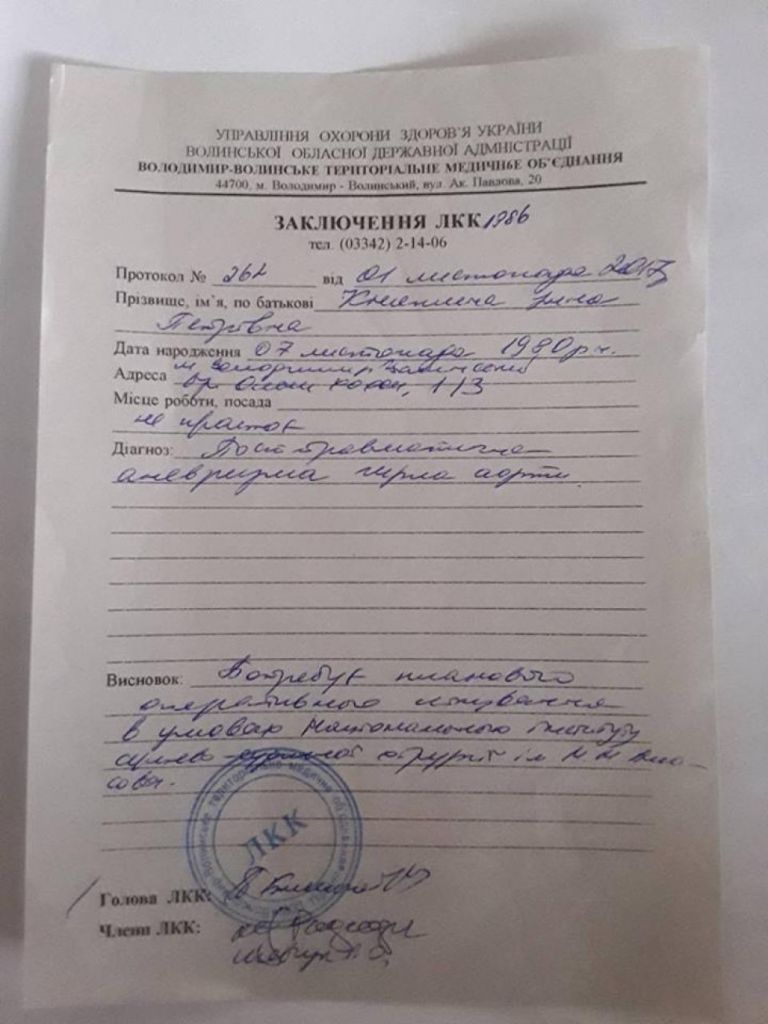 УПРАВЛІННЯ ОХОРОНИ ЗДОРОВ'Я УКРАЇНИ
ВОЛИНСЬКОЇ ОБЛАСНОЇ ДЕРЖАВНОЇ АДМІНІСТРАЦІЇ
ВОЛОДИМИР-ВОЛИНСЬКЕ ТЕРИТОРІАЛЬНЕ МЕДИЧНЕ ОБ'ЄДНАННЯ
44700, м. Володимир - Волинський, вул. Ак. Павлова, 20
ЗАКЛЮЧЕННЯ ЛКК 1986
тел. (03342) 2-14-06
Протокол № 262 від 01 листопада 2017
Прізвище, ім'я, по батькові
Петрівна
Дата народження 07 листопада 1990 р.н.
Адреса м
113
Місце роботи, посада
не працює
Діагноз: Посттравматична
аневризма гирла аорти
Висновок: Потребує планового
оперативного лікування
в умовах Національного інституту
серцево судинної хірургії ім М М Амо-
сова.
ЛКК
Голова ЛКК:
Члени ЛКК: